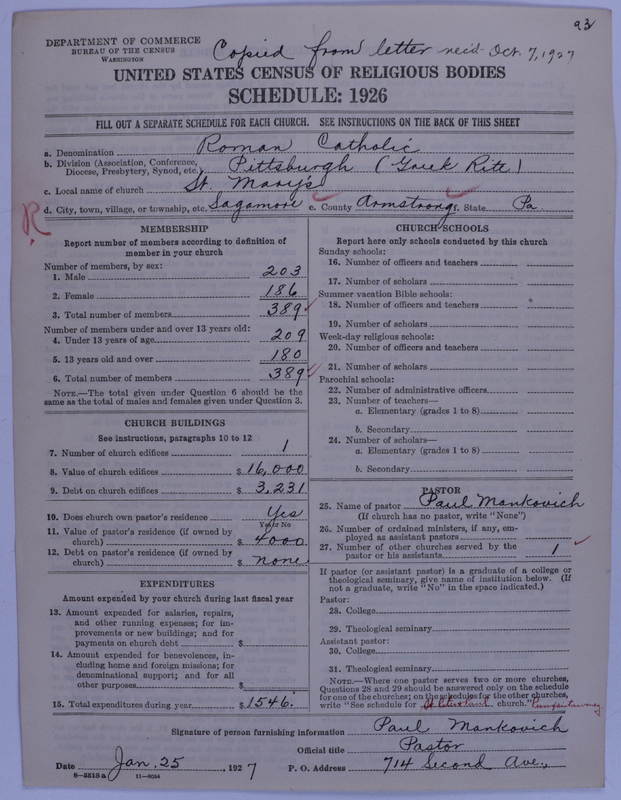 93
DEPARTMENT OF COMMERCE
BUREAU OF THE CENSUS
WASHINGTON
Copied from letter rec'd Oct. 7, 1927
UNITED STATES CENSUS OF RELIGIOUS BODIES
SCHEDULE: 1926
FILL OUT A SEPARATE SCHEDULE FOR EACH CHURCH. SEE INSTRUCTIONS ON THE BACK OF THIS SHEET
a. Denomination Roman Catholic
b. Division (Association, Conference, Diocese, Presbytery, Synod, etc.) Pittsburgh (Greek Rite)
c. Local name of church St. Mary's
d. City, town, village, or township, etc. Sagamore e. County Armstrong f. State Pa.
R
MEMBERSHIP
Report number of members according to definition of
member in your church
Number of members, by sex:
1. Male 203
2. Female 186
3. Total number of members 389
Number of members under and over 13 years old:
4. Under 13 years of age 209
5. 13 years old and over 180
6. Total number of members 389
NOTE.—The total given under Question 6 should be
same as the total of males and females given under Question 3.
CHURCH BUILDINGS
See instructions, paragraphs 10 to 12
7. Number of church edifices 1
8. Value of church edifices $ 16,000
9. Debt on church edifices $ 3,231
10. Does church own pastor's residence Yes
Yes or No
11. Value of pastor's residence (if owned by
church) $ 4000
12. Debt on pastor's residence (if owned by
church) $ none
EXPENDITURES
Amount expended by your church during last fiscal year
13. Amount expended for salaries, repairs,
and other running expenses; for im-
provements or new buildings; and for
payments on church debt $
14. Amount expended for benevolences, in-
cluding home and foreign missions; for
denominational support; and for all
other purposes $
15. Total expenditures during year $ 1546.
CHURCH SCHOOLS
Report here only schools conducted by this church
Sunday schools:
16. Number of officers and teachers
17. Number of scholars
Summer vacation Bible schools:
18. Number of officers and teachers
19. Number of scholars
Week-day religious schools:
20. Number of officers and teachers
21. Number of scholars
Parochial schools:
22. Number of administrative officers
23. Number of teachers—
a. Elementary (grades 1 to 8)
b. Secondary
24. Number of scholars—
a. Elementary (grades 1 to 8)
b. Secondary
PASTOR
25. Name of pastor Paul Mankovich
(If church has no pastor, write "None")
26. Number of ordained ministers, if any, em-
ployed as assistant pastors
27. Number of other churches served by the
pastor or his assistants 1
If pastor (or assistant pastor) is a graduate of a college or
theological seminary, give name of institution below. (If
not a graduate, write "No" in the space indicated.)
Pastor:
28. College
29. Theological seminary
Assistant pastor:
30. College
31. Theological seminary
NOTE.—Where one pastor serves two or more churches,
Questions 28 and 29 should be answered only on the schedule
for one of the churches; on the schedules for the other churches,
write "See schedule for church." Punxsutawney
Signature of person furnishing information Paul Mankovich
Official title Pastor
Date Jan. 25, 1927 P. O. Address 714 Second Ave.,
8—5518a 11—9034